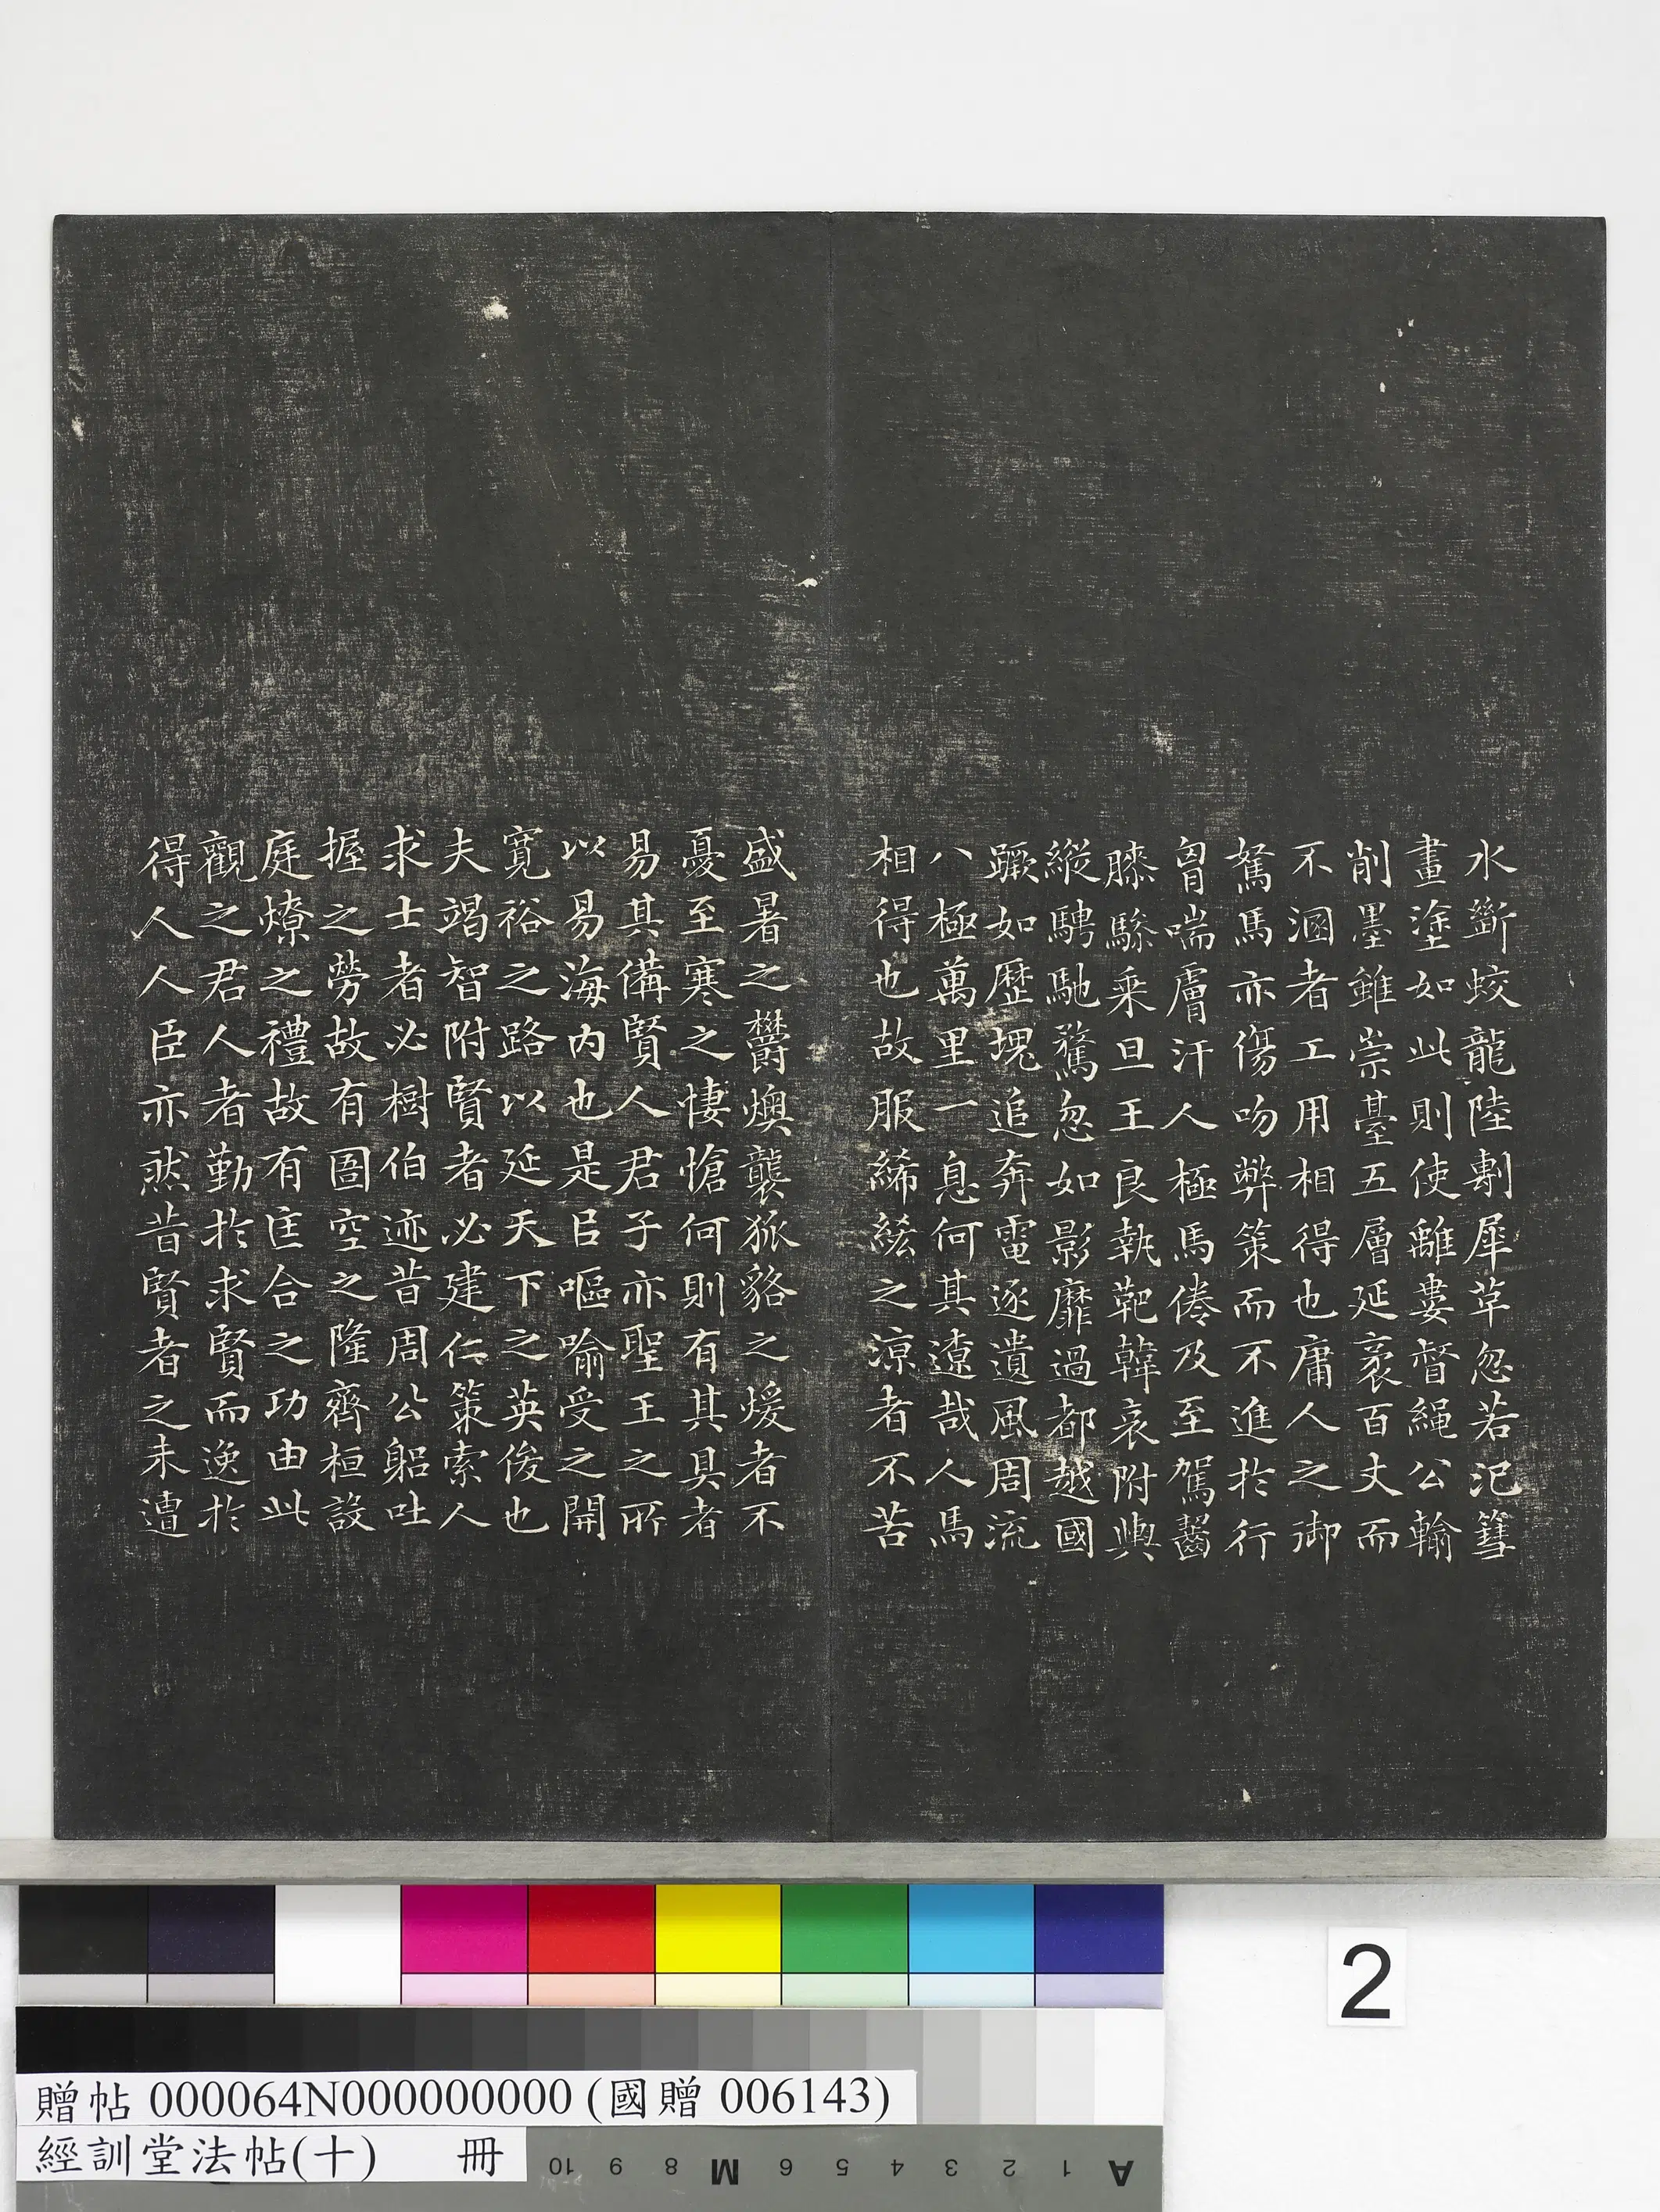 水斷蛟龍陸剸犀革忽若汜篲
畫塗如此則使離婁督繩公輸
削墨雖崇臺五層延袤百丈而
不溷者工用相得也庸人之御
駑馬亦傷吻弊策而不進於行
胷喘膚汗人極馬倦及至駕齧
膝驂乗旦王良執靶韓哀附輿
縱騁馳騖忽如影靡過都越國
蹶如歷塊追奔電逐遺風周流
八極萬里一息何其遼哉人馬
相得也故服絺綌之涼者不苦
盛暑之欝燠襲狐貉之煖者不
憂至寒之悽愴何則有其具者
易其備賢人君子亦聖王之所
以易海内也是㠯嘔喻受之開
寬裕之路以延天下之英俊也
夫竭智附賢者必建仁策索人
求士者必樹伯迹昔周公躬吐
握之勞故有圄空之隆齊桓設
庭燎之禮故有匡合之功由此
觀之君人者勤於求賢而逸於
得人人臣亦然昔賢者之未遭
2
贈帖 000064N000000000 (國贈 006143)
經訓堂法帖(十) 冊
10 9 8 M 6 5 4 3 2 1 A